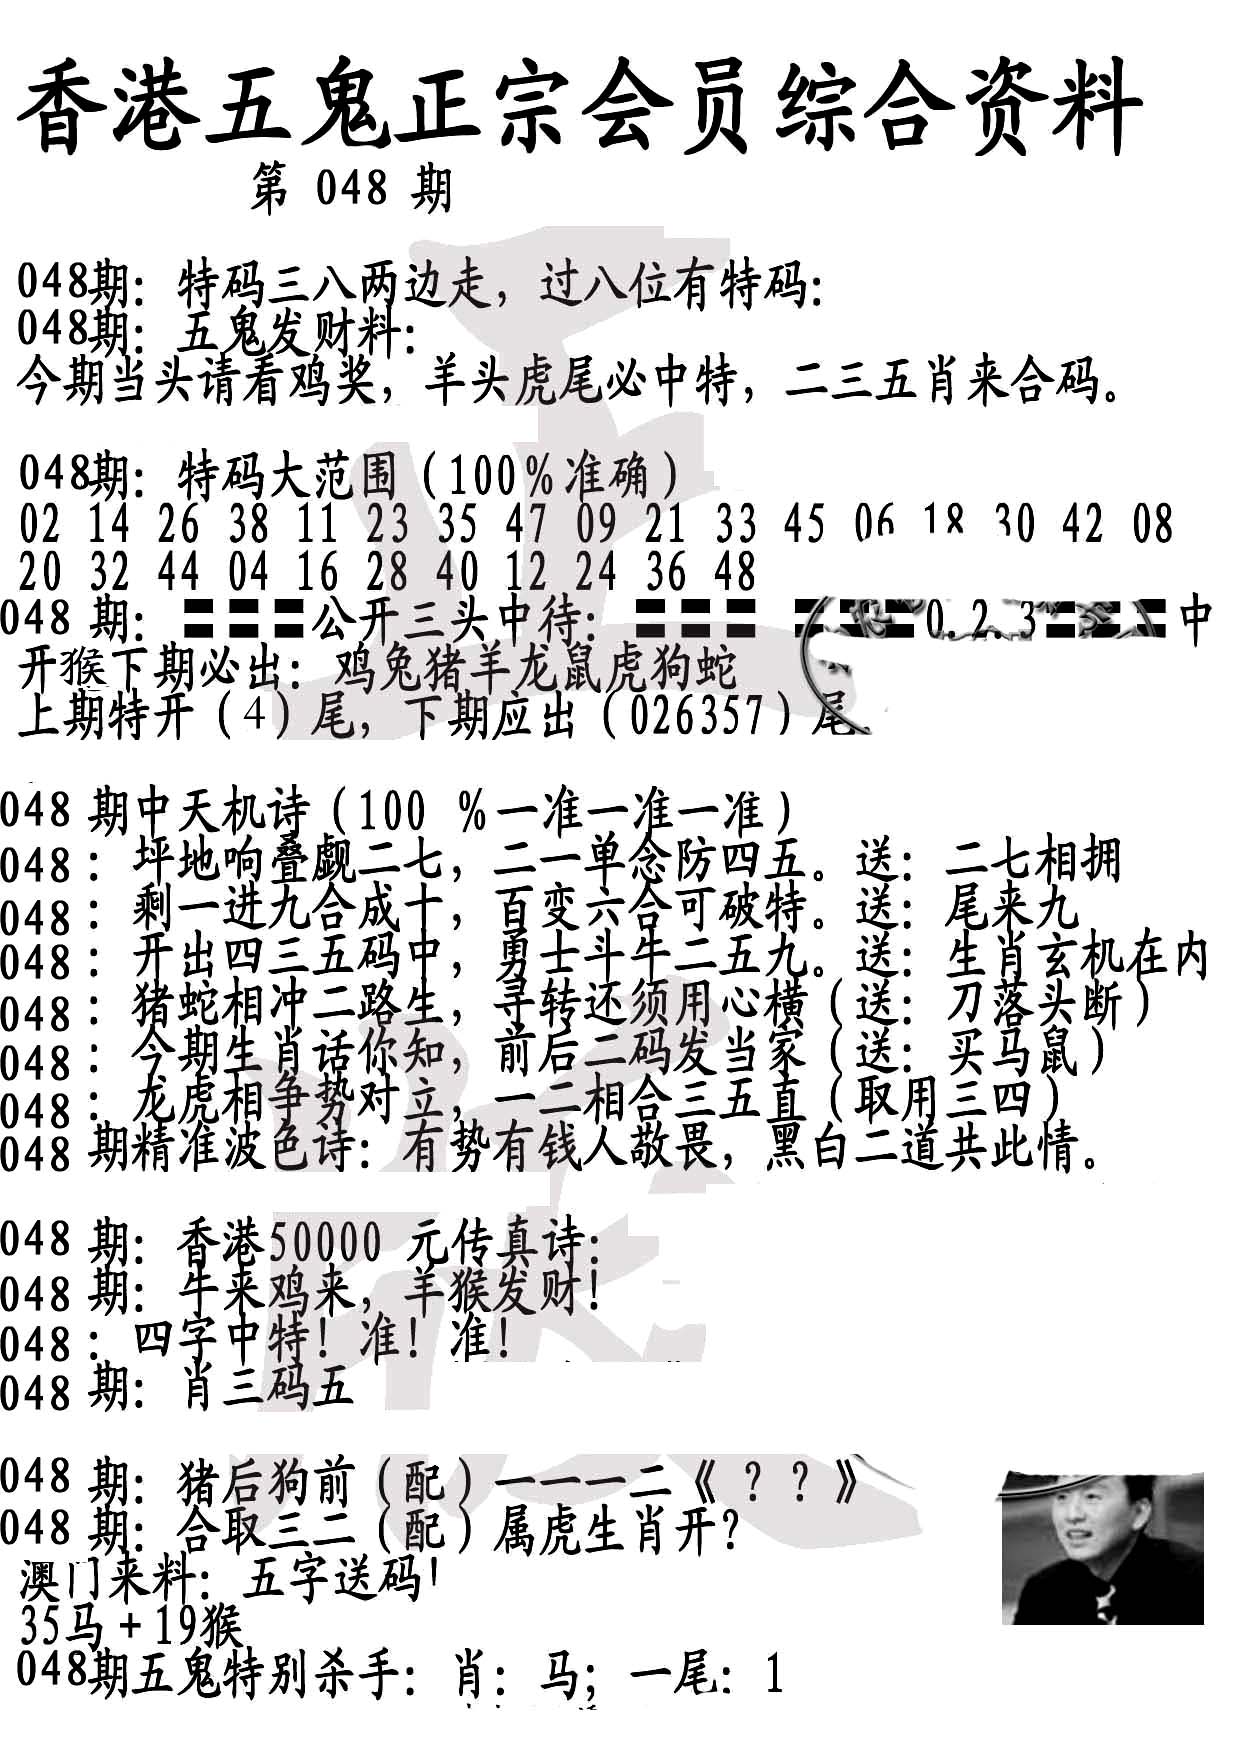 香港五鬼正宗会员综合资料
第 048 期
048期：特码三八两边走，过八位有特码：
048期：五鬼发财料：
今期当头请看鸡奖，羊头虎尾必中特，二三五肖来合码。
048期：特码大范围（100%准确）
02 14 26 38 11 23 35 47 09 21 33 45 06 18 30 42 08
20 32 44 04 16 28 40 12 24 36 48
048 期：〓〓〓公开三头中待：〓〓〓 0.2.3 中
开猴下期必出：鸡兔猪羊龙鼠虎狗蛇
上期特开（4）尾，下期应出（026357）尾
048 期中天机诗（100 %一准一准一准）
048：坪地响叠觑二七，二一单念防四五。送：二七相拥
048：剩一进九合成十，百变六合可破特。送：尾来九
048：开出四三五码中，勇士斗牛二五九。送：生肖玄机在内
048：猪蛇相冲二路生，寻转还须用心横（送：刀落头断）
048：今期生肖话你知，前后二码发当家（送：买马鼠）
048：龙虎相争势对立，一二相合三五直（取用三四）
048 期精准波色诗：有势有钱人敬畏，黑白二道共此情。
048 期：香港50000 元传真诗：
048 期：牛来鸡来，羊猴发财！
048：四字中特！准！准！
048 期：肖三码五
048 期：猪后狗前（配）一一一二《？？》
048 期：合取三二（配）属虎生肖开？
澳门来料：五字送码！
35马+19猴
048期五鬼特别杀手：肖：马；一尾：1